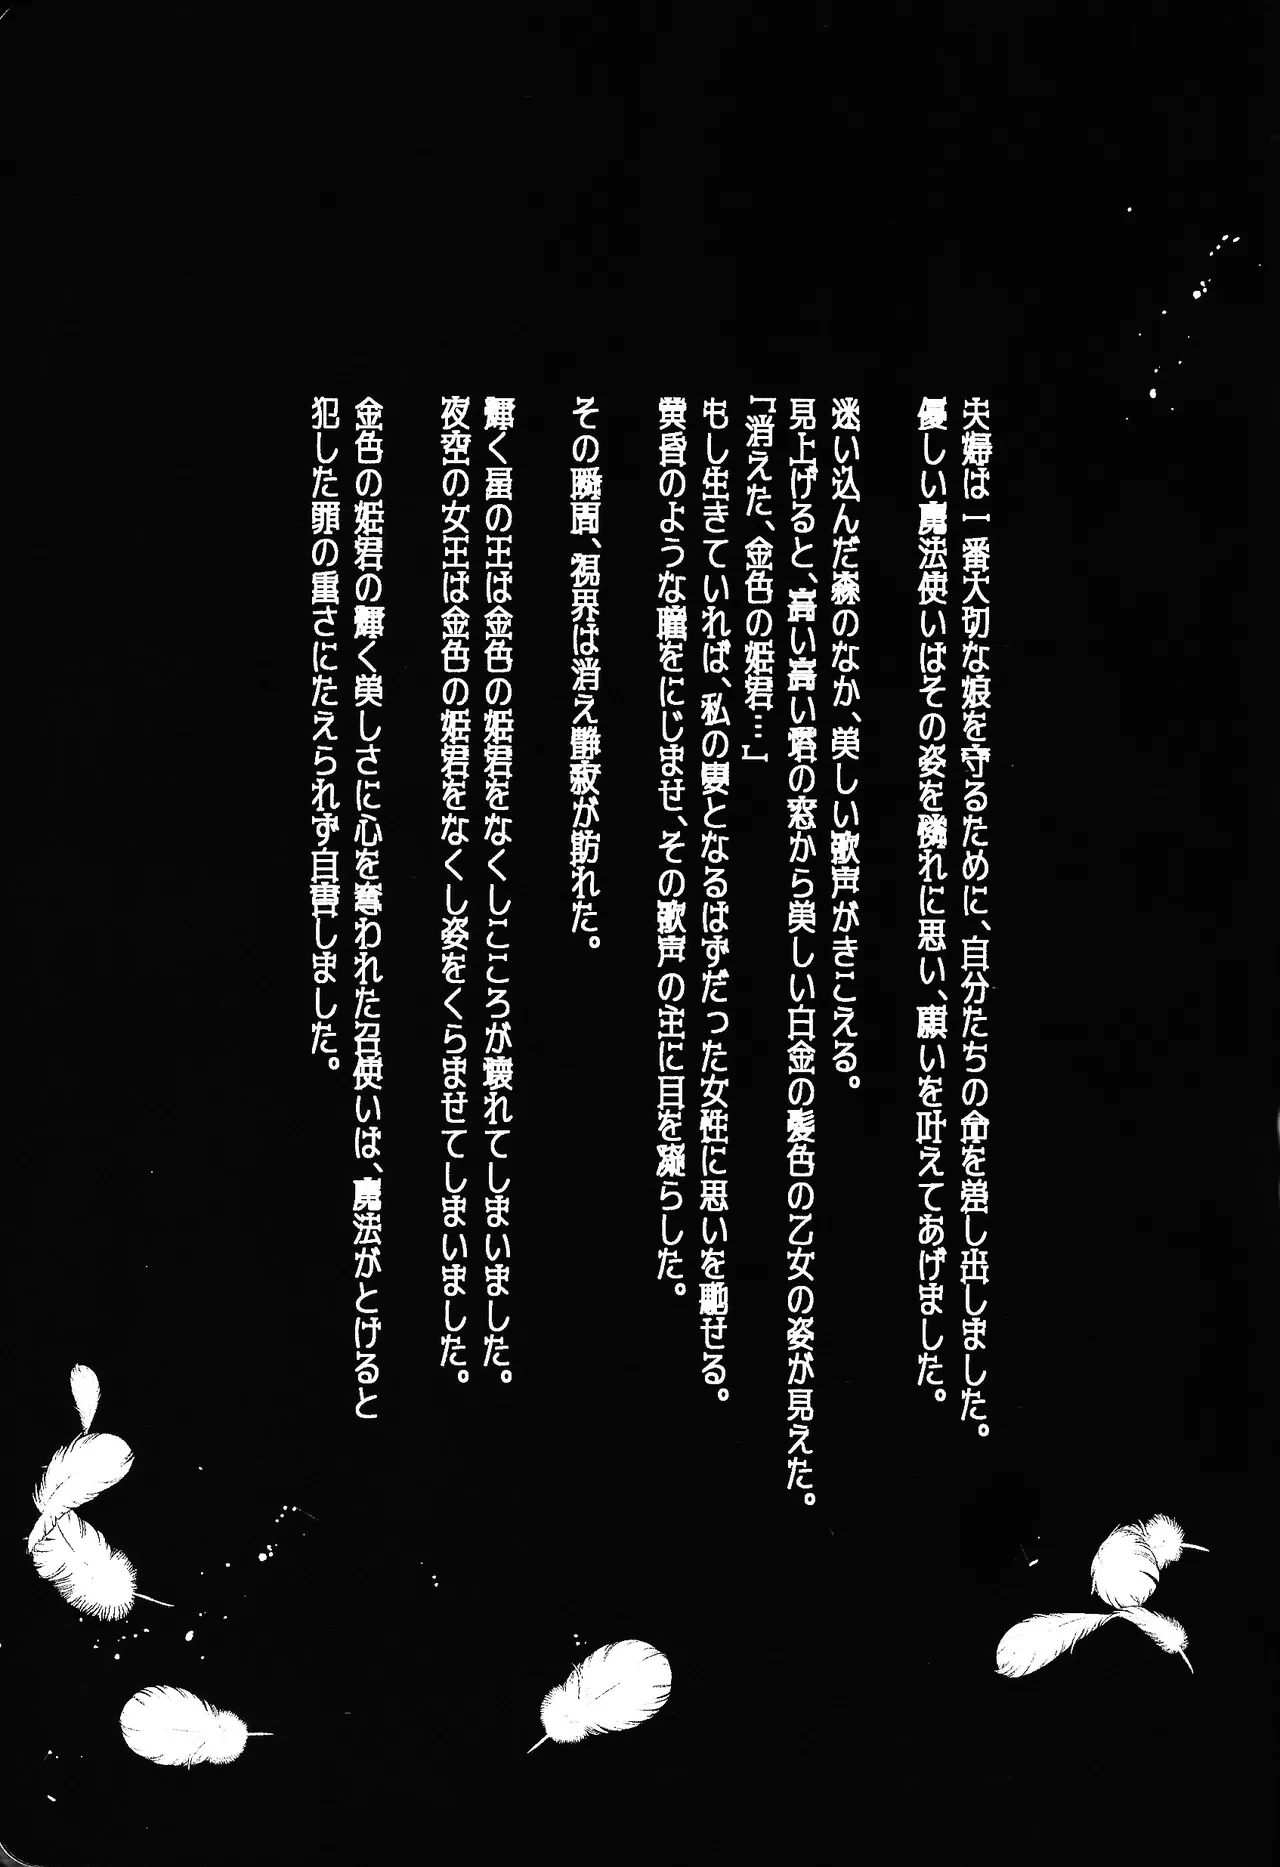 夫婦は一番大切な娘を守るために、自分たちの命を差し出しました。
優しい魔法使いはその姿を憐れに思い、願いを叶えてあげました。
迷い込んだ森のなか、美しい歌声がきこえる。
見上げると、高い高い塔の窓から美しい白金の髪色の乙女の姿が見えた。
「消えた、金色の姫君…」
もし生きていれば、私の妻となるはずだった女性に思いを馳せる。
黄昏のような瞳をにじませ、その歌声の主に目を凝らした。
その瞬間、視界は消え静寂が訪れた。
輝く星の王は金色の姫君をなくしこころが壊れてしまいました。
夜空の女王は金色の姫君をなくし姿をくらませてしまいました。
金色の姫君の輝く美しさに心を奪われた召使いは、魔法がとけると
犯した罪の重さにたえられず自害しました。